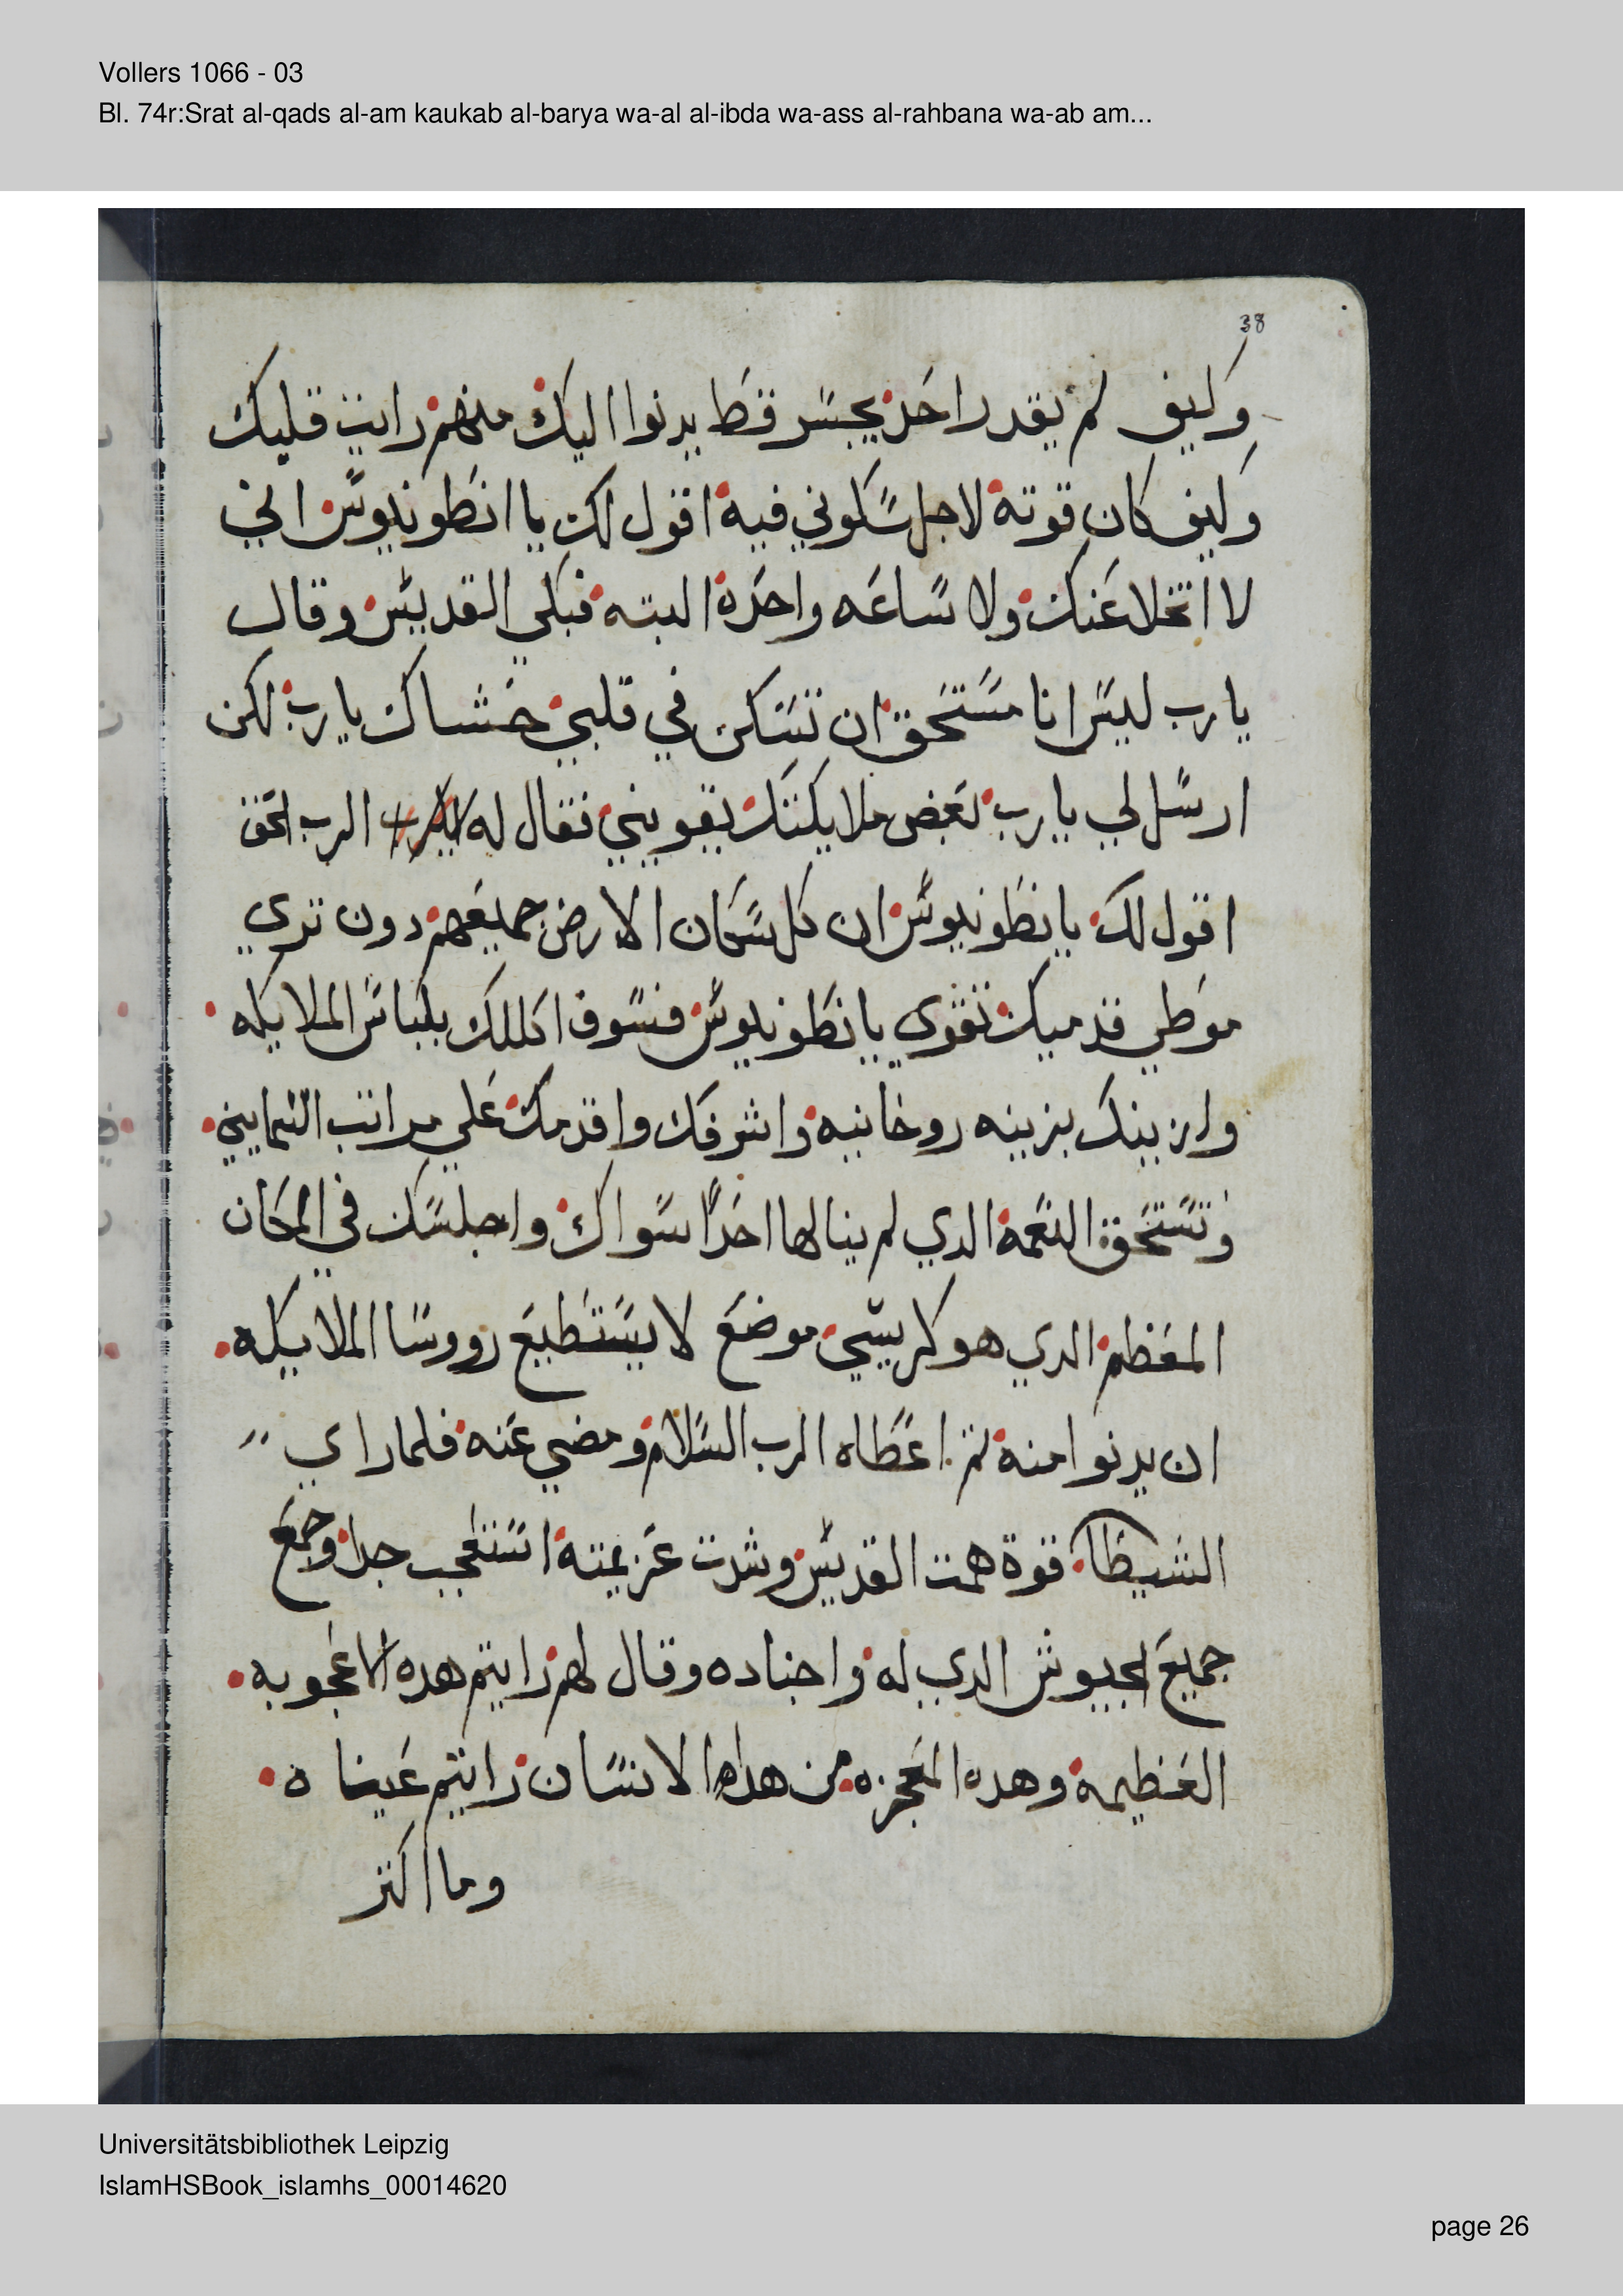 Vollers 1066 - 03
Bl. 74r:Srat al-qads al-am kaukab al-barya wa-al al-ibda wa-ass al-rahbana wa-ab am...
38
وكيف لم يقدر احد يجسر قط يدنوا اليك منهم رايت قليك
وكيف كان قوته لاجل سكوني فيه اقول لك يا انطونيوس انني
لا اتخلا عنك ولا ساعه واحده البته فبكي القديس وقال
يارب ليس انا مستحق ان تسكن في قلبي حشاك يارب لكن
ارسل لي يارب بعض ملايكتك يقويني فقال له الرب الحق
اقول لك يانطونيوس ان كل سكان الارض جميعهم دون تري
موطي قدميك تقوي يانطونيوس فسوف اكللك بلباس الملايكه
وازينك بزينه روحانيه واشرفك واقدمك علي مراتب السمايين
وتستحق النعمه الدي لم ينالها احدا سواك واجلسك في المكان
المعظم الدي هو كرسي موضع لا يستطيع رووسا الملايكه
ان يدنوا منه تم اعطاه الرب السلام ومضي عنه فلما راي
الشيطا قوة همت القديس وشدت عزيمته استعجب جدا وجمع
جميع الجيوش الدي له واجناده وقال لهم رايتم هده الاعجوبه
العظيمه وهده المعجزه من هدا الانسان رايتم عيناه
وما اكتر
Universitätsbibliothek Leipzig
IslamHSBook_islamhs_00014620
page 26